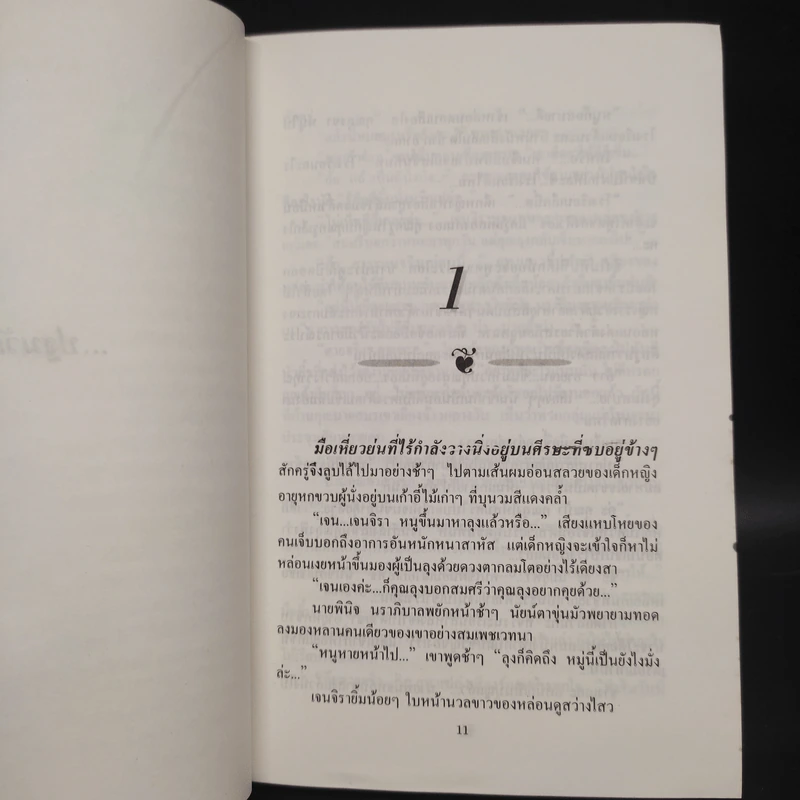 1
มือเหี่ยวย่นที่ไร้กำลังวางนิ่งอยู่บนศีรษะที่ซบอยู่ข้างๆ
สักครู่จึงลูบไล้ไปมาอย่างช้าๆ ไปตามเส้นผมอ่อนสลวยของเด็กหญิง
อายุหกขวบผู้นั่งอยู่บนเก้าอี้ไม้เก่าๆ ที่บุนวมสีแดงคล้ำ
“เจน...เจนจิรา หนูขึ้นมาหาลุงแล้วหรือ...” เสียงแหบโหยของ
คนเจ็บบอกถึงอาการอันหนักหนาสาหัส แต่เด็กหญิงจะเข้าใจก็หาไม่
หล่อนเงยหน้าขึ้นมองผู้เป็นลุงด้วยดวงตากลมโตอย่างไร้เดียงสา
“เจนเองค่ะ...ก็คุณลุงบอกสมศรีว่าคุณลุงอยากคุยด้วย...”
นายพินิจ นราภิบาลพยักหน้าช้าๆ นัยน์ตาขุ่นมัวพยายามทอด
ลงมองหลานคนเดียวของเขาอย่างสมเพชเวทนา
“หนูหายหน้าไป...” เขาพูดช้าๆ “ลุงก็คิดถึง หมู่นี้เป็นยังไงมั่ง
ล่ะ...”
เจนจิรายิ้มน้อยๆ ใบหน้านวลขาวของหล่อนดูสว่างไสว
11